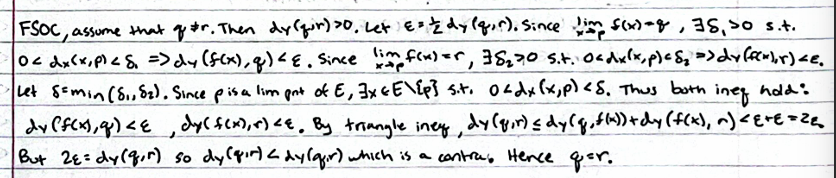 FSOC, assume that q≠r. Then dy(q,r)>0. Let ε=½dy(q,r). Since lim x→p f(x)=q, ∃δ₁>0 s.t.
0<dx(x,p)<δ₁ => dy(f(x),q)<ε. Since lim x→p f(x)=r, ∃δ₂>0 s.t. 0<dx(x,p)<δ₂ => dy(f(x),r)<ε.
Let δ=min(δ₁,δ₂). Since p is a lim pnt of E, ∃x∈E\{p} s.t. 0<dx(x,p)<δ. Thus both ineq hold:
dy(f(x),q)<ε, dy(f(x),r)<ε. By triangle ineq, dy(q,r)≤dy(q,f(x))+dy(f(x),r)<ε+ε=2ε.
But 2ε=dy(q,r) so dy(q,r)<dy(q,r) which is a contra. Hence q=r.